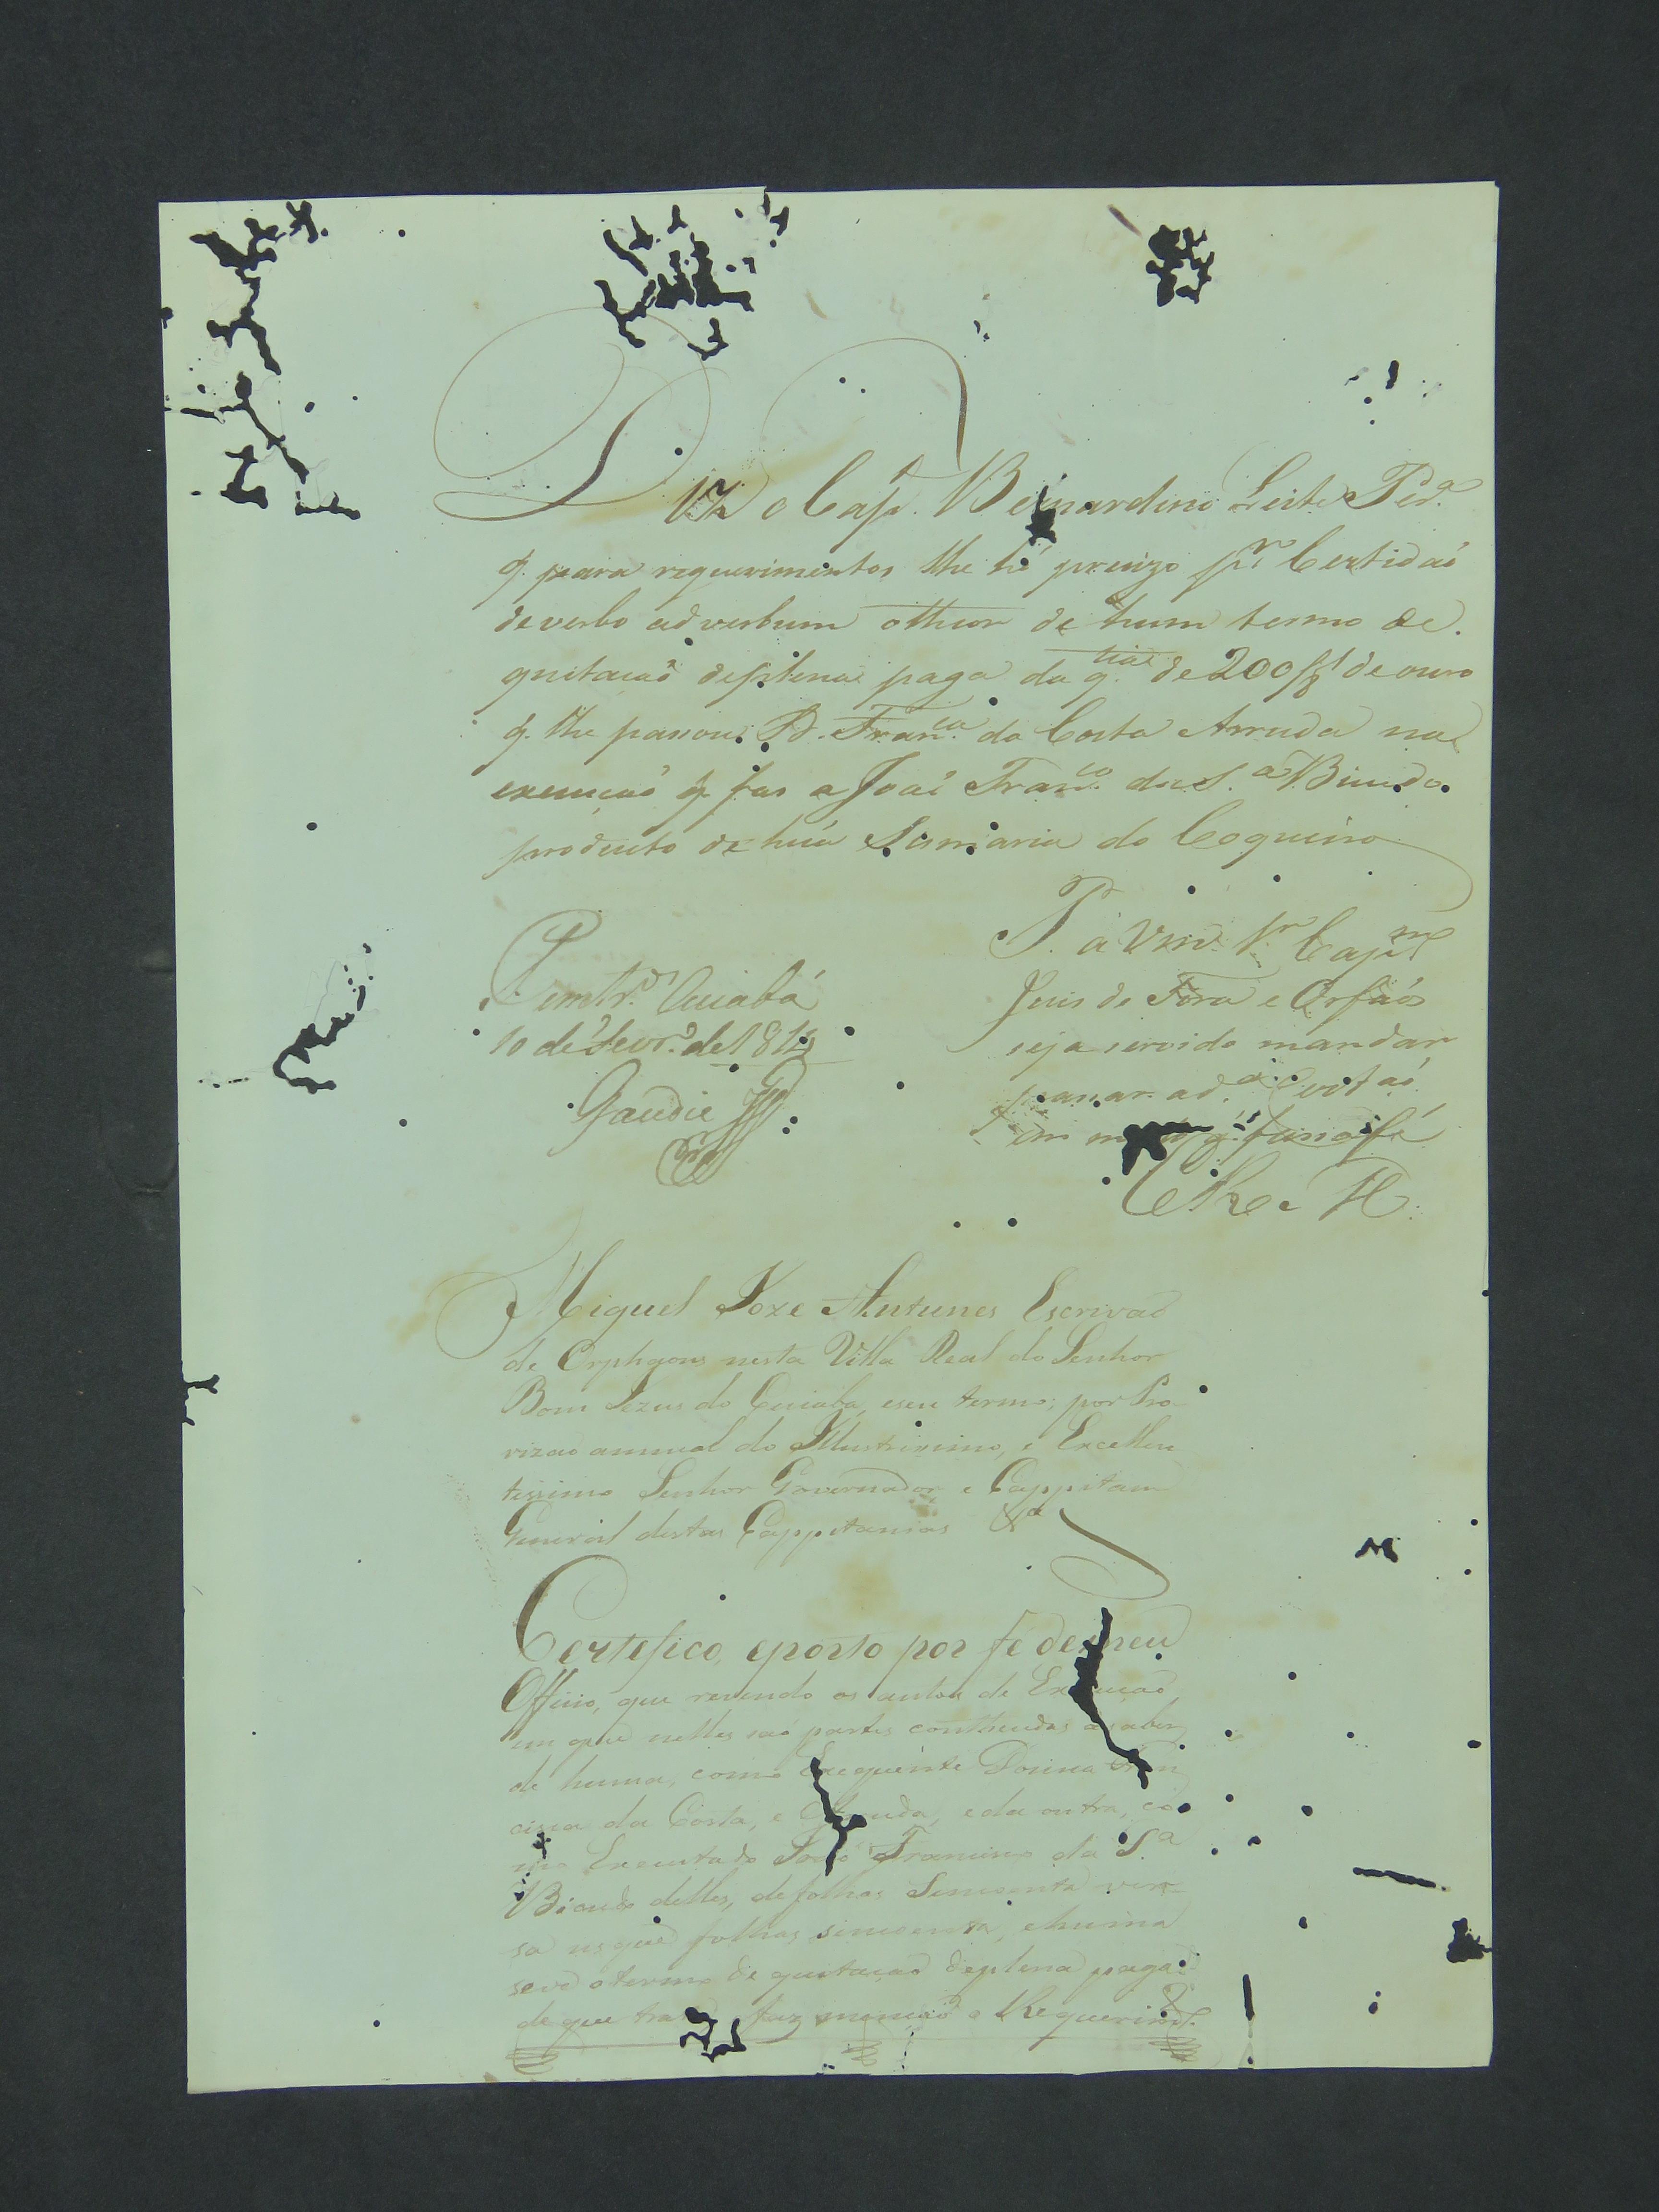 Diz o Cap.m Bernardino Leite Per.a
q. para requerimentos lhe hé precizo p.r Certidaõ
de verbo ad verbum o theor de hum termo de
quitacaõ de plena paga da q.tia de 200/8.as de ouro
q. lhe passou D. Fran.ca da Costa Arruda na
execuçaõ q. fas a Joaõ Fran.co da S.a Bicudo
producto de húa Sesmaria do Coqueiro
P. a Vm.ce S.r Cap.m
Juis de Fora e Orfaõs
seja servido mandar
passar a d.a Certaõ
em q. fasa fé
E R M
P em tr.o Cuiabá
10 de Fevr.o de 181
Gaudie
Miguel Joze Antunes Escrivaõ
de Orphaons nesta Villa Real do Senhor
Bom Jezus do Cuiaba, e seu termo; por Pro
vizaõ annual do Illustrissimo, e Excellen
tissimo Senhor Governador, e Cappitam
General destas Cappitanias &a
Certefico, e porto por fé de meu
Officio, que revendo os autos de Execuçaõ,
em que nelles saõ partes conthiudas a saber
de huma, como Exequente Donna Fran
cisca da Costa, e Arruda, e da outra, co
mo Executado Joaõ Francisco da S.a
Bicudo delles, de folhas Sincoenta ver
so usque folhas sincoenta, e huma
se vê o termo de quitaçaõ de plena paga
de que faz mençaõ o Requerim.to